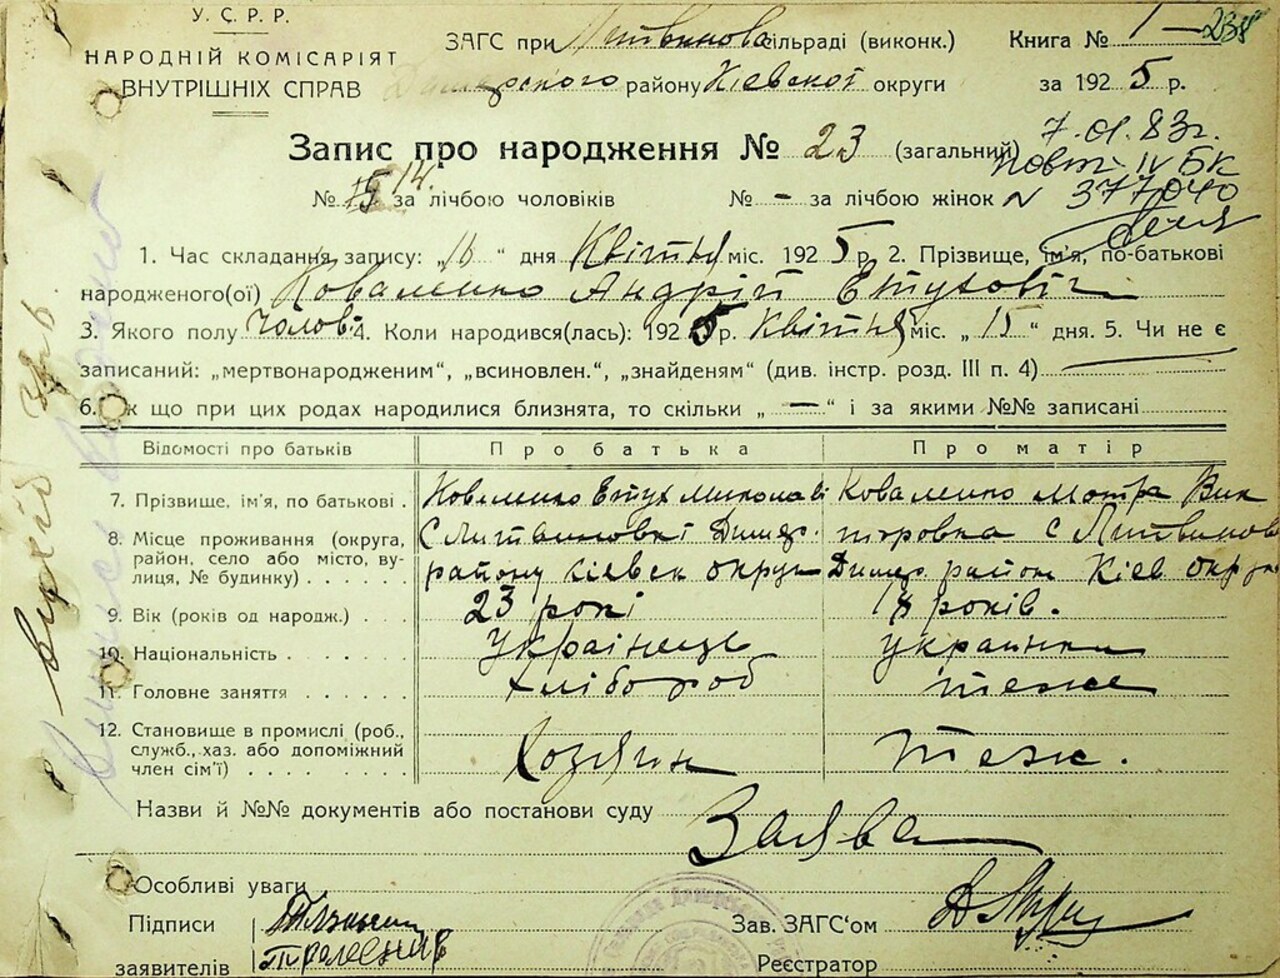 У.С.Р.Р.
НАРОДНІЙ КОМІСАРІЯТ
ВНУТРІШНІХ СПРАВ
ЗАГС при Литвинова сільраді (виконк.)
Димерского району Київської округи
Книга № 1 — 238
за 1925 р.
Запис про народження № 23 (загальний)
7.01.83г.
повт. IV БК
№ 377040
№ 14. за лічбою чоловіків № - за лічбою жінок
1. Час складання запису: „16 “ дня Квітня міс. 1925 р. 2. Прізвище, ім'я, по-батькові
народженого(ої) Коваленко Андрій Евтухович
3. Якого полу чолов. 4. Коли народився(лась): 1925 р. Квітня міс. „ 15 “ дня. 5. Чи не є
записаний: „мертвонародженим“, „всиновлен.“, „знайденям“ (див. інстр. розд. III п. 4) —
6. к що при цих родах народилися близнята, то скільки „ — “ і за якими №№ записані
Відомості про батьків Про батька Про матір
7. Прізвище, ім'я, по батькові . Коваленко Евтух Миколаві Коваленко Мотра Вик
8. Місце проживання (округа, С Литвиновкі Димер. торовка с Литвинов
район, село або місто, ву-
лиця, № будинку) . . . . . району Кіевск округи Димер. район Кіев округи
9. Вік (років од народж.) . . . 23 рокі 18 років.
10. Національність . . . . українець украинка
11. Головне заняття . . . . . . хлібороб теже
12. Становище в промислі (роб.,
служб., хаз. або допоміжний
член сім'ї) . . . . . . . Хозяин Теж.
Назви й №№ документів або постанови суду Заява
Особливі уваги
Підписи
заявителів
Зав. ЗАГС‘ом
Реєстратор